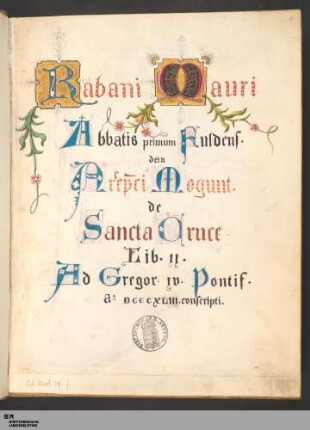 Rabani Mauri
Abbatis primum Fuldens.
dein
Mogunt.
de
Sancta Cruce
Lib. II.
Ad Gregor. IV. Pontif.
Aº DCCCXLIII. conscripti.